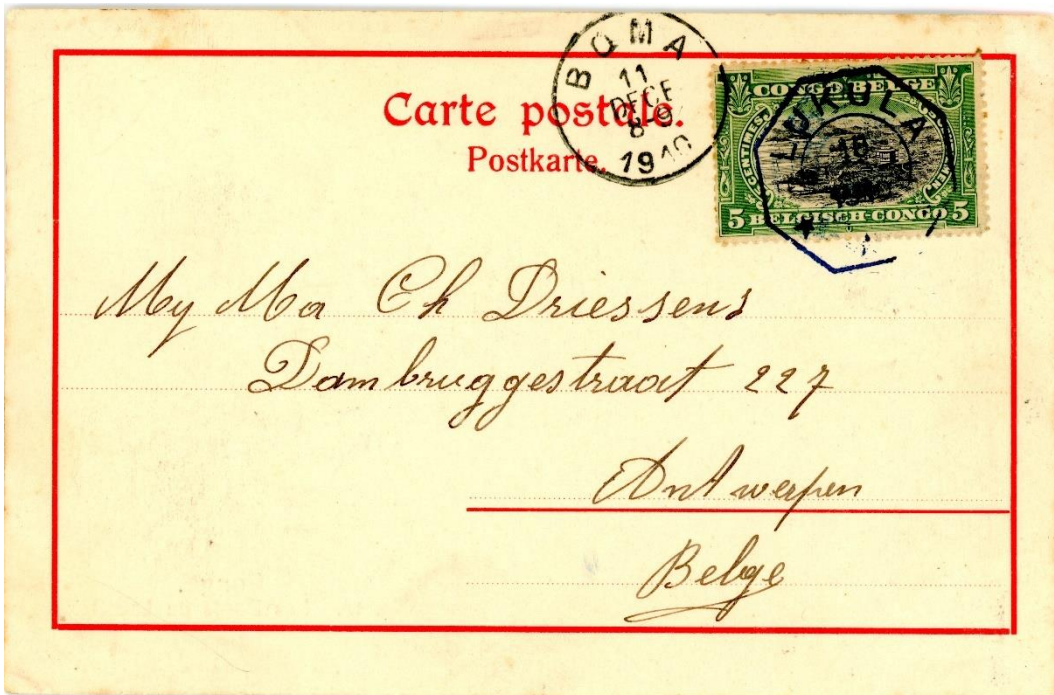 BOMA
11
DECE
8-9
1910
Carte postale.
Postkarte.
CONGO BELGE
CENTIMES
5 BELGISCH-CONGO 5
LUKULA
16
My Ma Ch Driessens
Dambruggestraat 227
Antwerpen
Belge